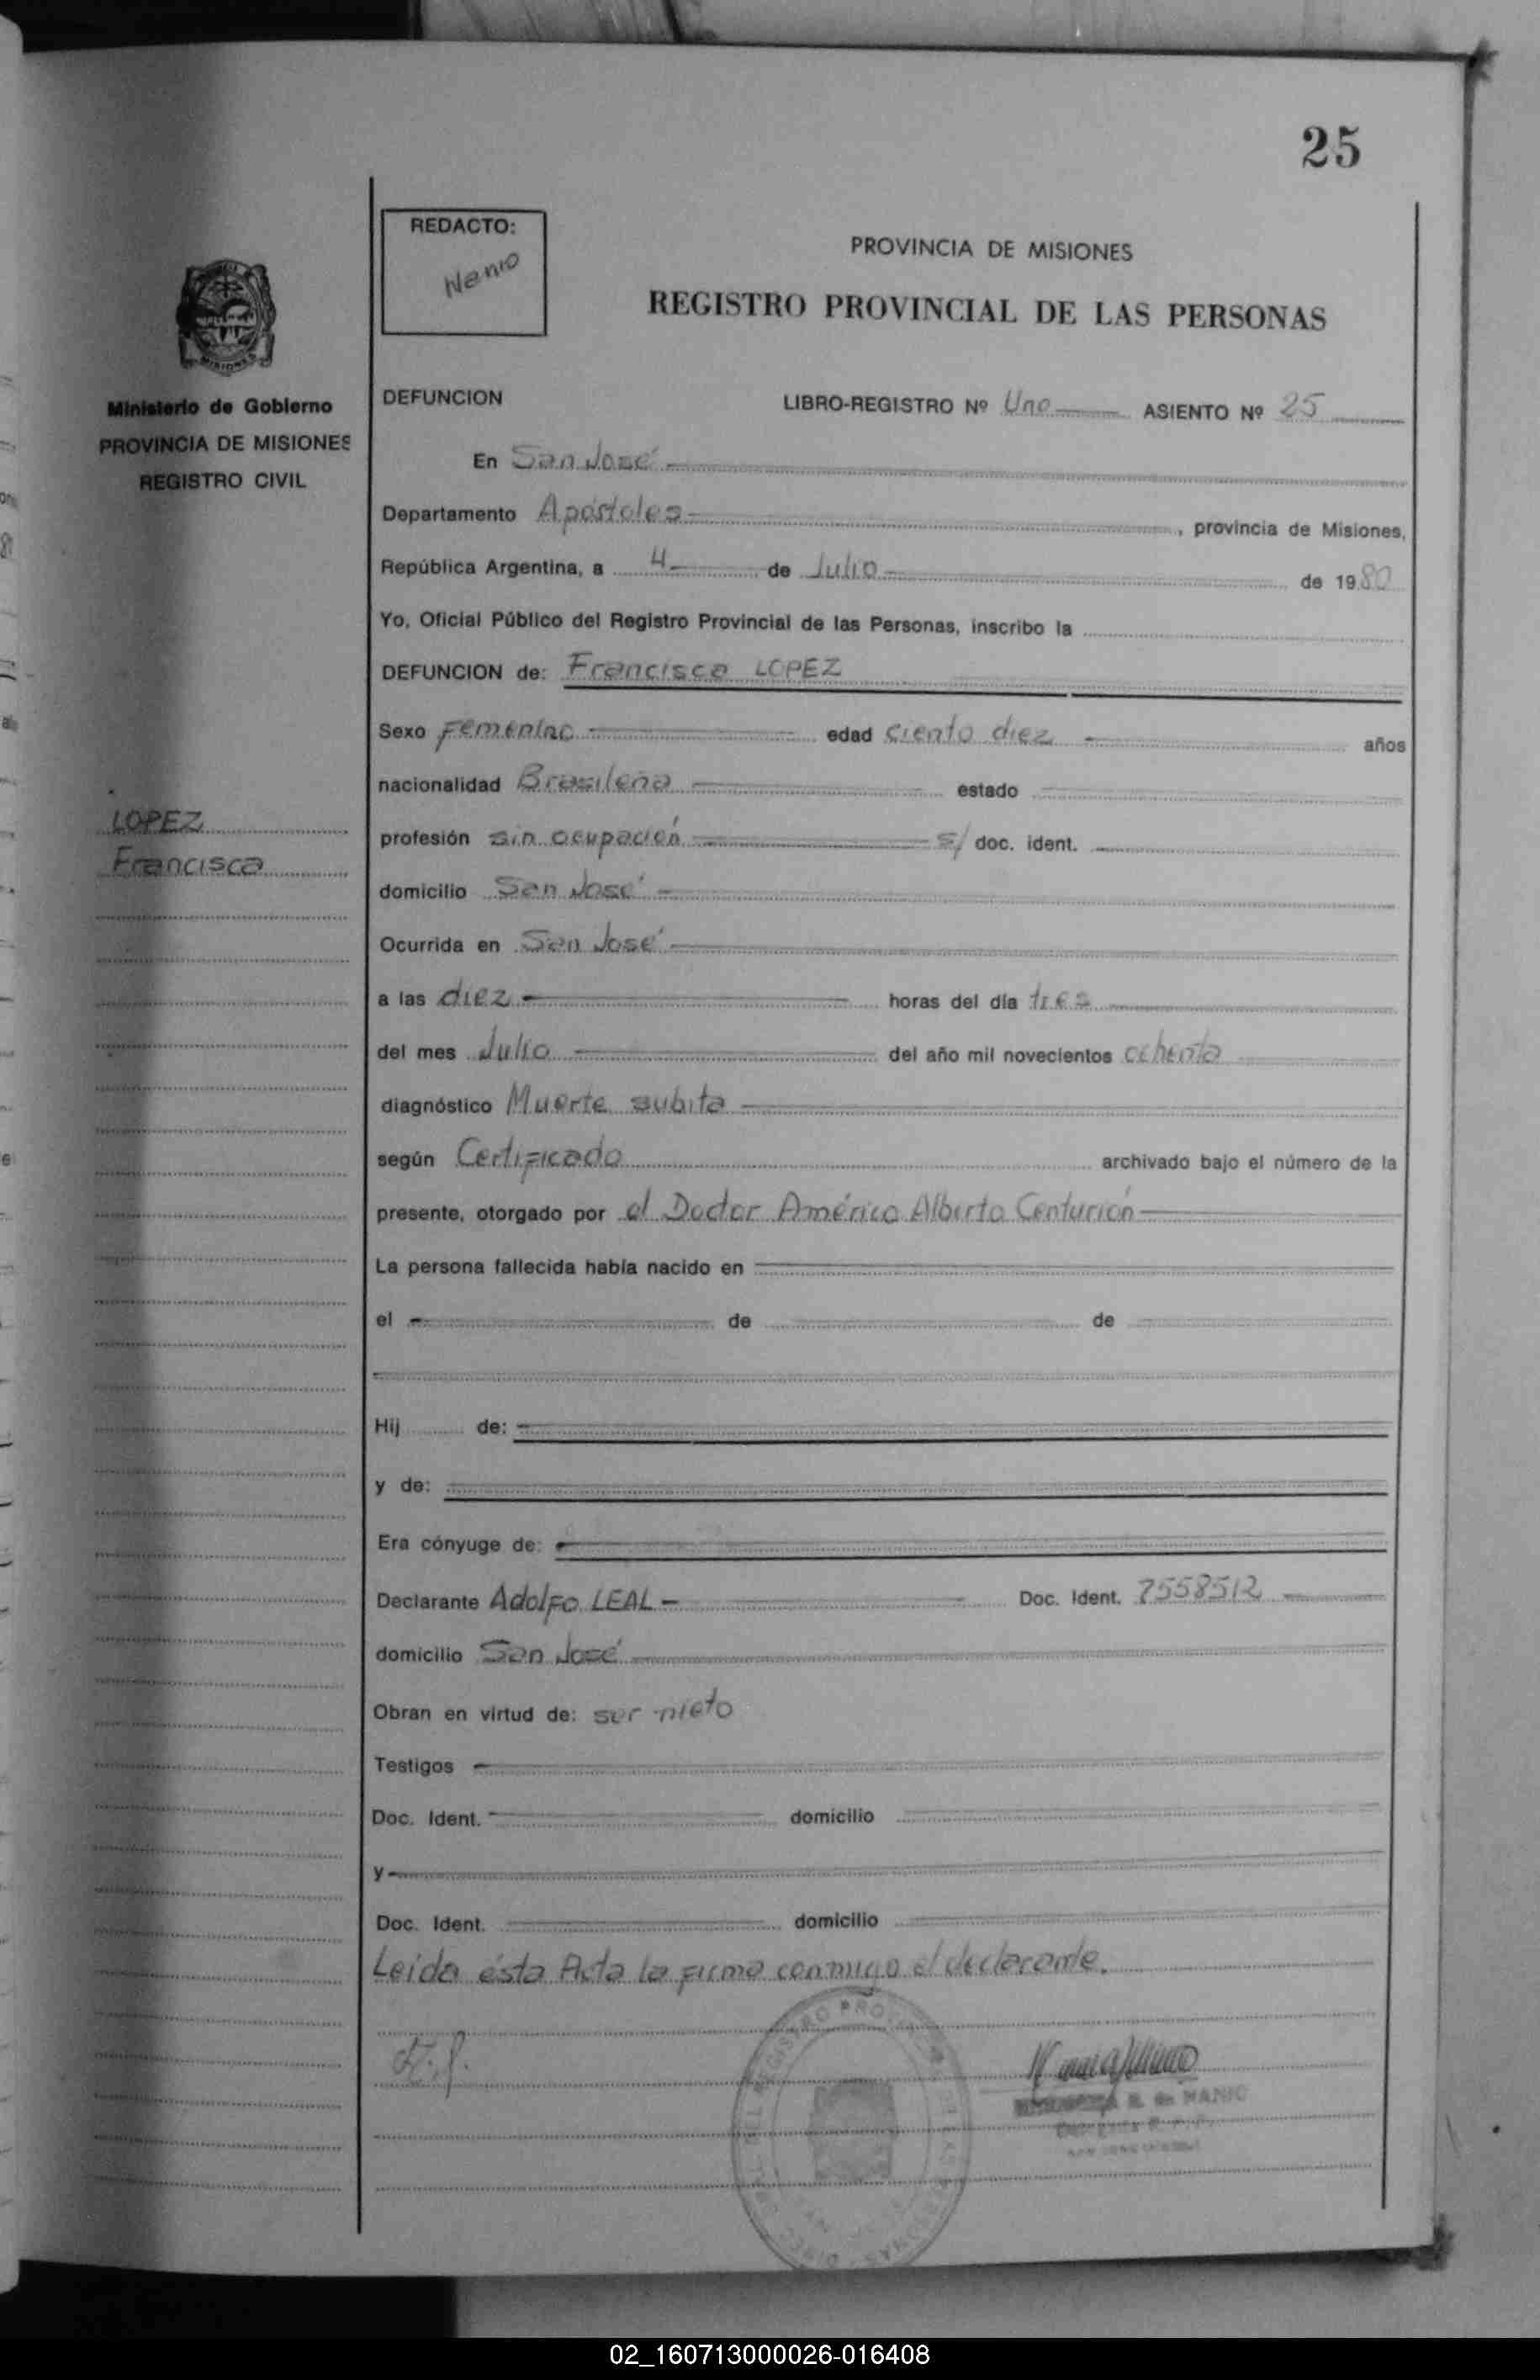 25
REDACTO:
PROVINCIA DE MISIONES
REGISTRO PROVINCIAL DE LAS PERSONAS
Ministerio de Gobierno
PROVINCIA DE MISIONES
REGISTRO CIVIL
DEFUNCION LIBRO-REGISTRO Nº Uno ASIENTO Nº 25
En San José
Departamento Apóstoles, provincia de Misiones,
República Argentina, a 4 de Julio de 1980
Yo, Oficial Público del Registro Provincial de las Personas, inscribo la
DEFUNCION de: Francisca LOPEZ
Sexo Femenino edad ciento diez años
nacionalidad Brasileña estado
LOPEZ
Francisca
profesión sin ocupación s/ doc. ident.
domicilio San José
Ocurrida en San José
a las diez horas del día tres
del mes Julio del año mil novecientos ochenta
diagnóstico Muerte subita
según Certificado archivado bajo el número de la
presente, otorgado por el Doctor Américo Alberto Centurión
La persona fallecida había nacido en
el de de
Hij de:
y de:
Era cónyuge de:
Declarante Adolfo LEAL Doc. Ident. 7558512
domicilio San José
Obran en virtud de: ser nieto
Testigos
Doc. Ident. domicilio
y
Doc. Ident. domicilio
Leida ésta Acta la firma conmigo el declarante.
02_160713000026-016408